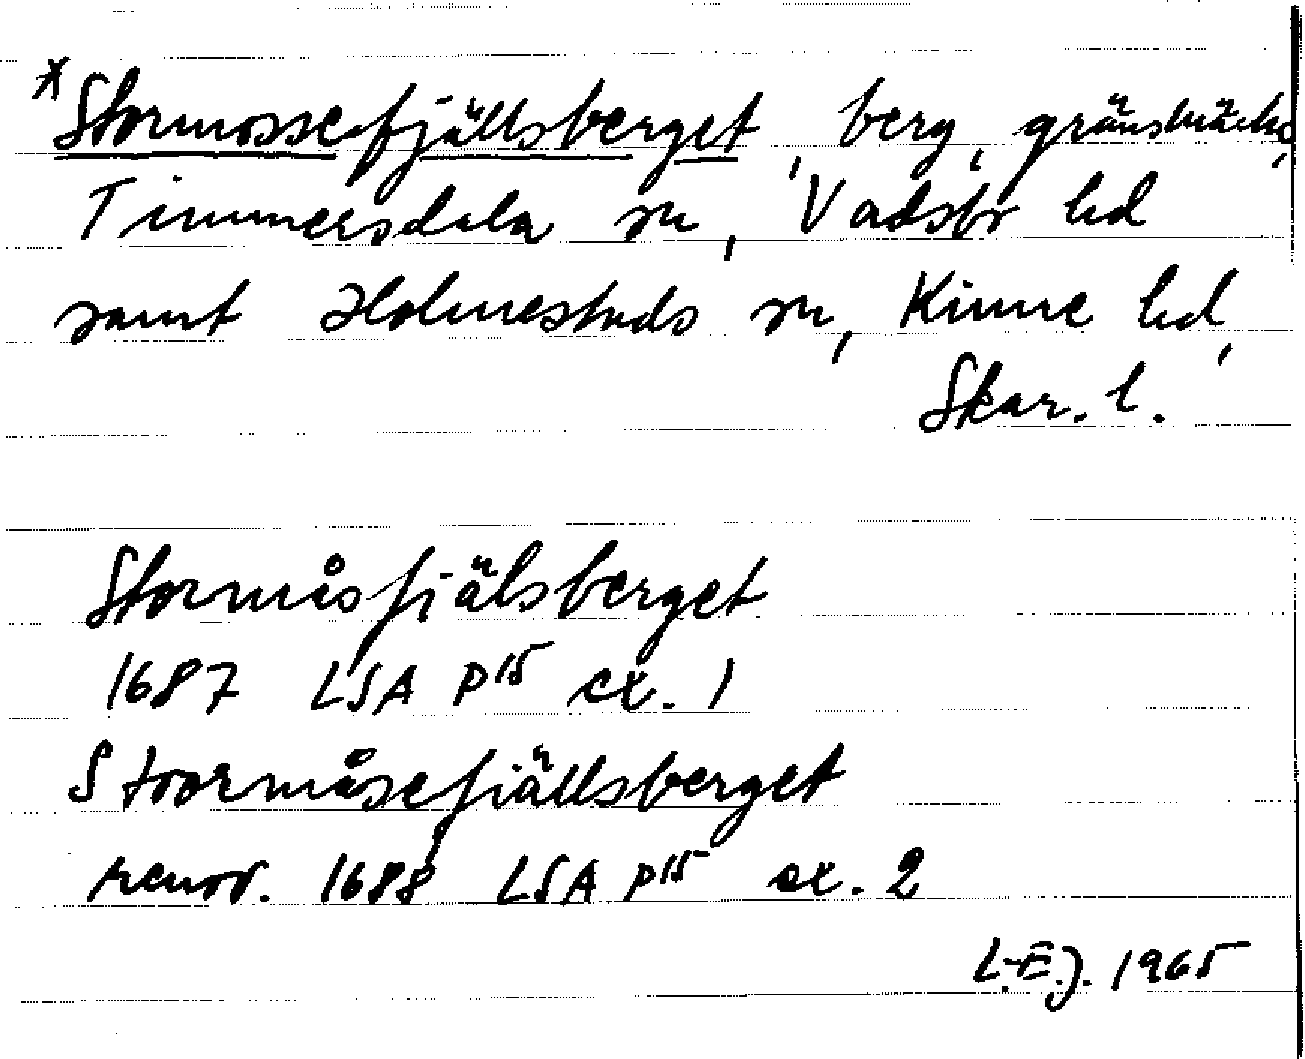 *Stormossefjällsberget, berg, gränsmärke,
Timmersdala sn, Vadsbr hd
samt Holmestads sn, Kinne hd,
Skar. l.
Stormåsfiälsberget
1687 LSA P15 ex. 1
Stoormåsefiällsberget
renov. 1688 LSA P15 ex. 2
L-E.J. 1965